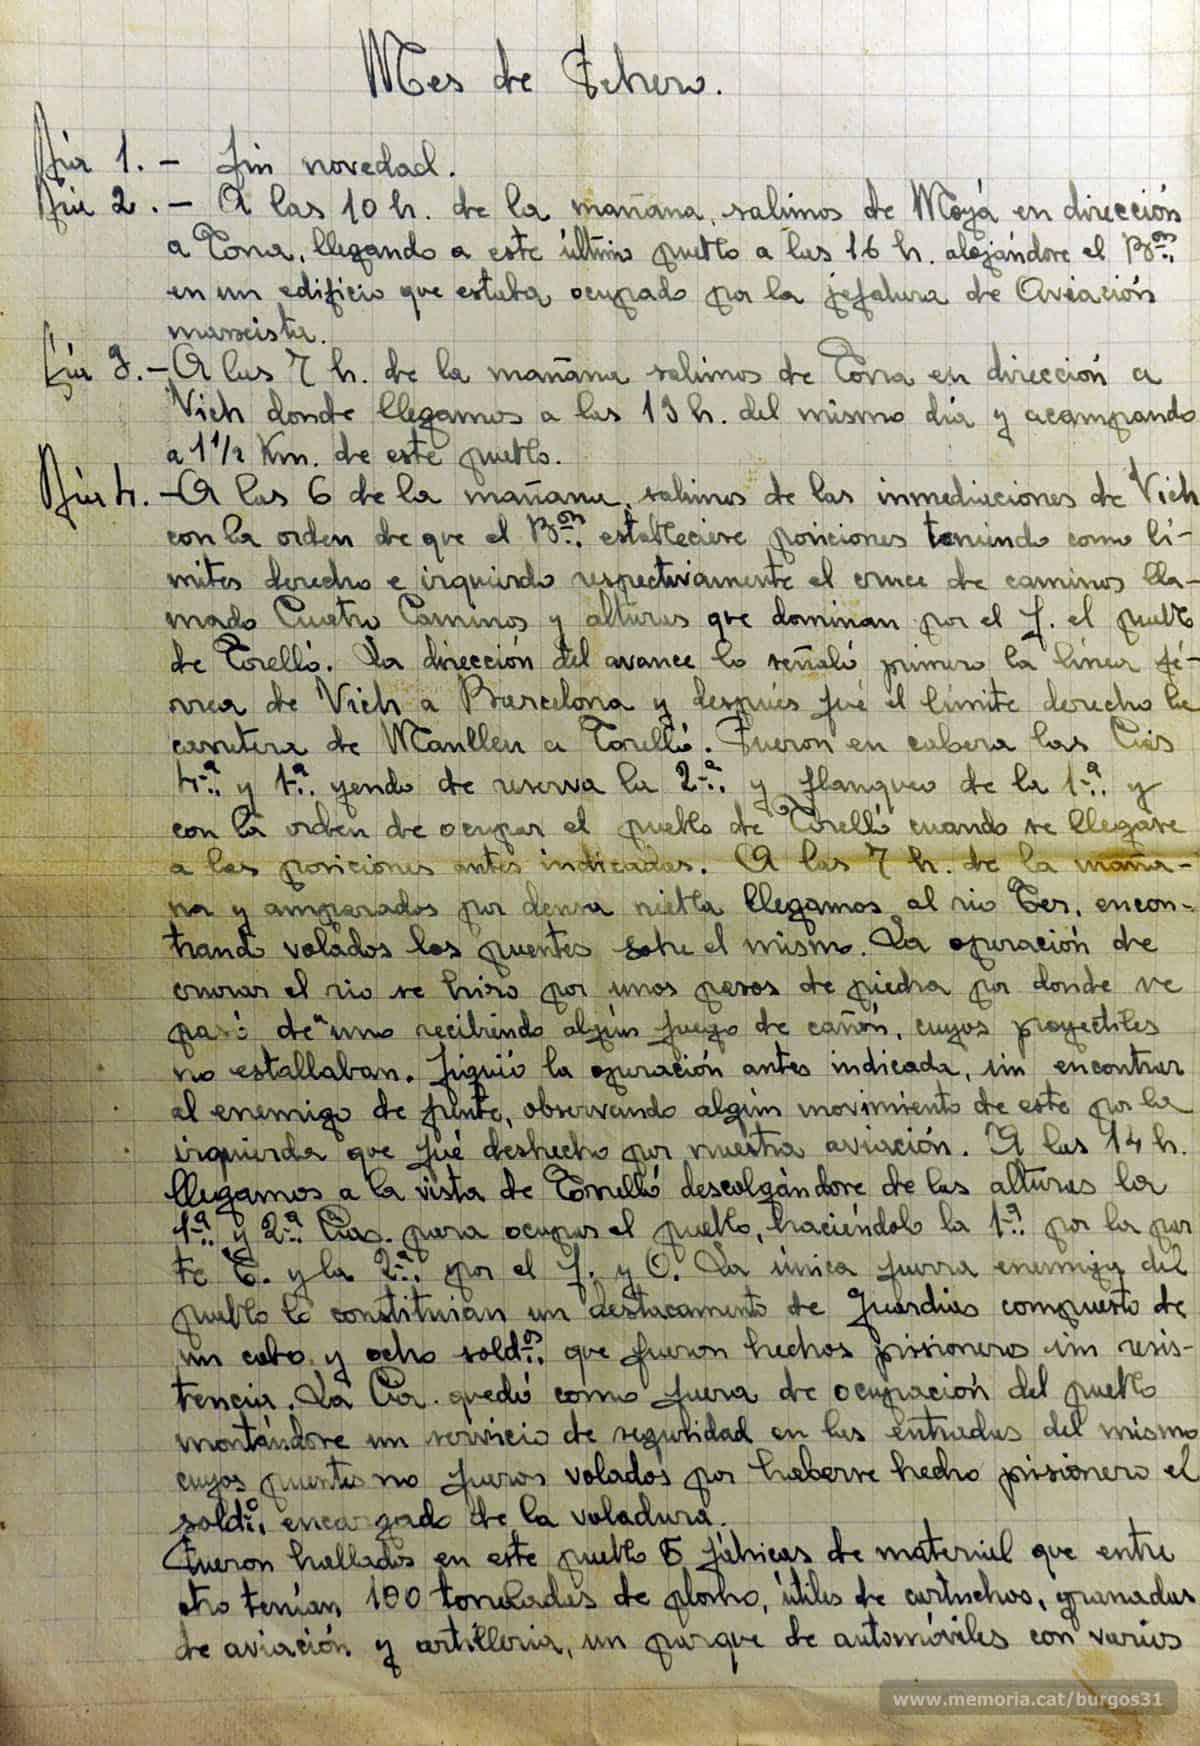 Mes de Febrero.
Día 1. - Sin novedad.
Día 2. - A las 10 h. de la mañana, salimos de Moyá en dirección
a Tona, llegando a este último pueblo a las 16 h. alojándose el Bón.
en un edificio que estaba ocupado por la jefatura de Aviación
marxista.
Día 3. - A las 7 h. de la mañana salimos de Tona en dirección a
Vich donde llegamos a las 13 h. del mismo día y acampando
a 1 1/2 Km. de este pueblo.
Día 4. - A las 6 de la mañana, salimos de las inmediaciones de Vich
con la orden de que el Bón. estableciese posiciones teniendo como lí-
mites derecho e izquierdo respectivamente el cruce de caminos lla-
mado Cuatro Caminos y alturas que dominan por el S. el pueblo
de Torelló. La dirección del avance lo señaló primero la línea fé-
rrea de Vich a Barcelona y después fué el límite derecho la
carretera de Manlleu a Torelló. Fueron en cabeza las Cías
4ª. y 1ª. yendo de reserva la 2ª. y flanqueo de la 1ª. y
con la orden de ocupar el pueblo de Torelló cuando se llegase
a las posiciones antes indicadas. A las 7 h. de la maña-
na y amparados por densa niebla llegamos al rio Ter, encon-
trando volados los puentes sobre el mismo. La operación de
cruzar el rio se hizo por unos pasos de piedra por donde se
pasó de "uno recibiendo algún fuego de cañón, cuyos proyectiles
no estallaban. Siguió la operación antes indicada, sin encontrar
al enemigo de frente, observando algún movimiento de este por la
izquierda que fué deshecho por nuestra aviación. A las 14 h.
llegamos a la vista de Torelló descolgándose de las alturas la
1ª. y 2ª. Cías. para ocupar el pueblo, haciéndolo la 1ª. por la par
te E. y la 2ª. por el S. y O. La única fuerza enemiga del
pueblo lo constituian un destacamento de Guardias compuesto de
un cabo y ocho soldos. que fueron hechos prisioneros sin resis-
tencia. La Cía. quedó como fuerza de ocupación del pueblo
montándose un servicio de seguridad en las entradas del mismo
cuyos puentes no fueron volados por haberse hecho prisionero el
soldo. encargado de la voladura.
Fueron hallados en este pueblo 5 fábricas de material que entre
otro tenían 100 toneladas de plomo, útiles de cartuchos, granadas
de aviación y artilleria, un parque de automóviles con varios
www.memoria.cat/burgos31